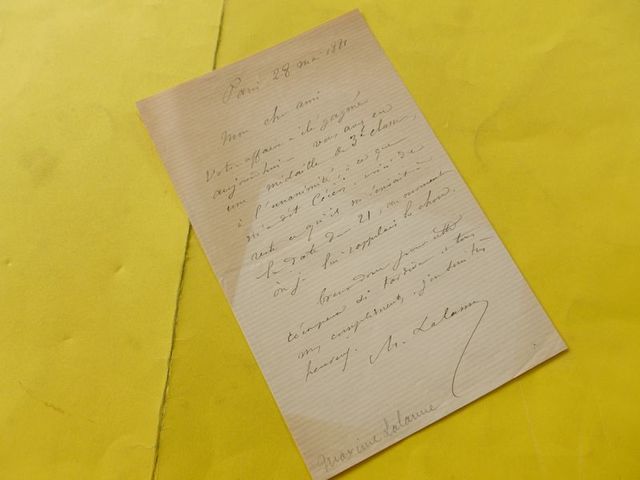 Paris 28 mai 1881
Mon cher ami
Votre affaire a été gagnée
aujourd'hui. vous avez eu
une médaille de 3e classe,
à l'unanimité, à ce que
m'a dit
reste ce qu'il m'écrivait à
la date du 21, au moment
où je lui rappelais la chose.
pour cette
récompense si tardive et tous
mes compliments, j'en suis très
heureux. M. Lalanne
Maxime Lalanne